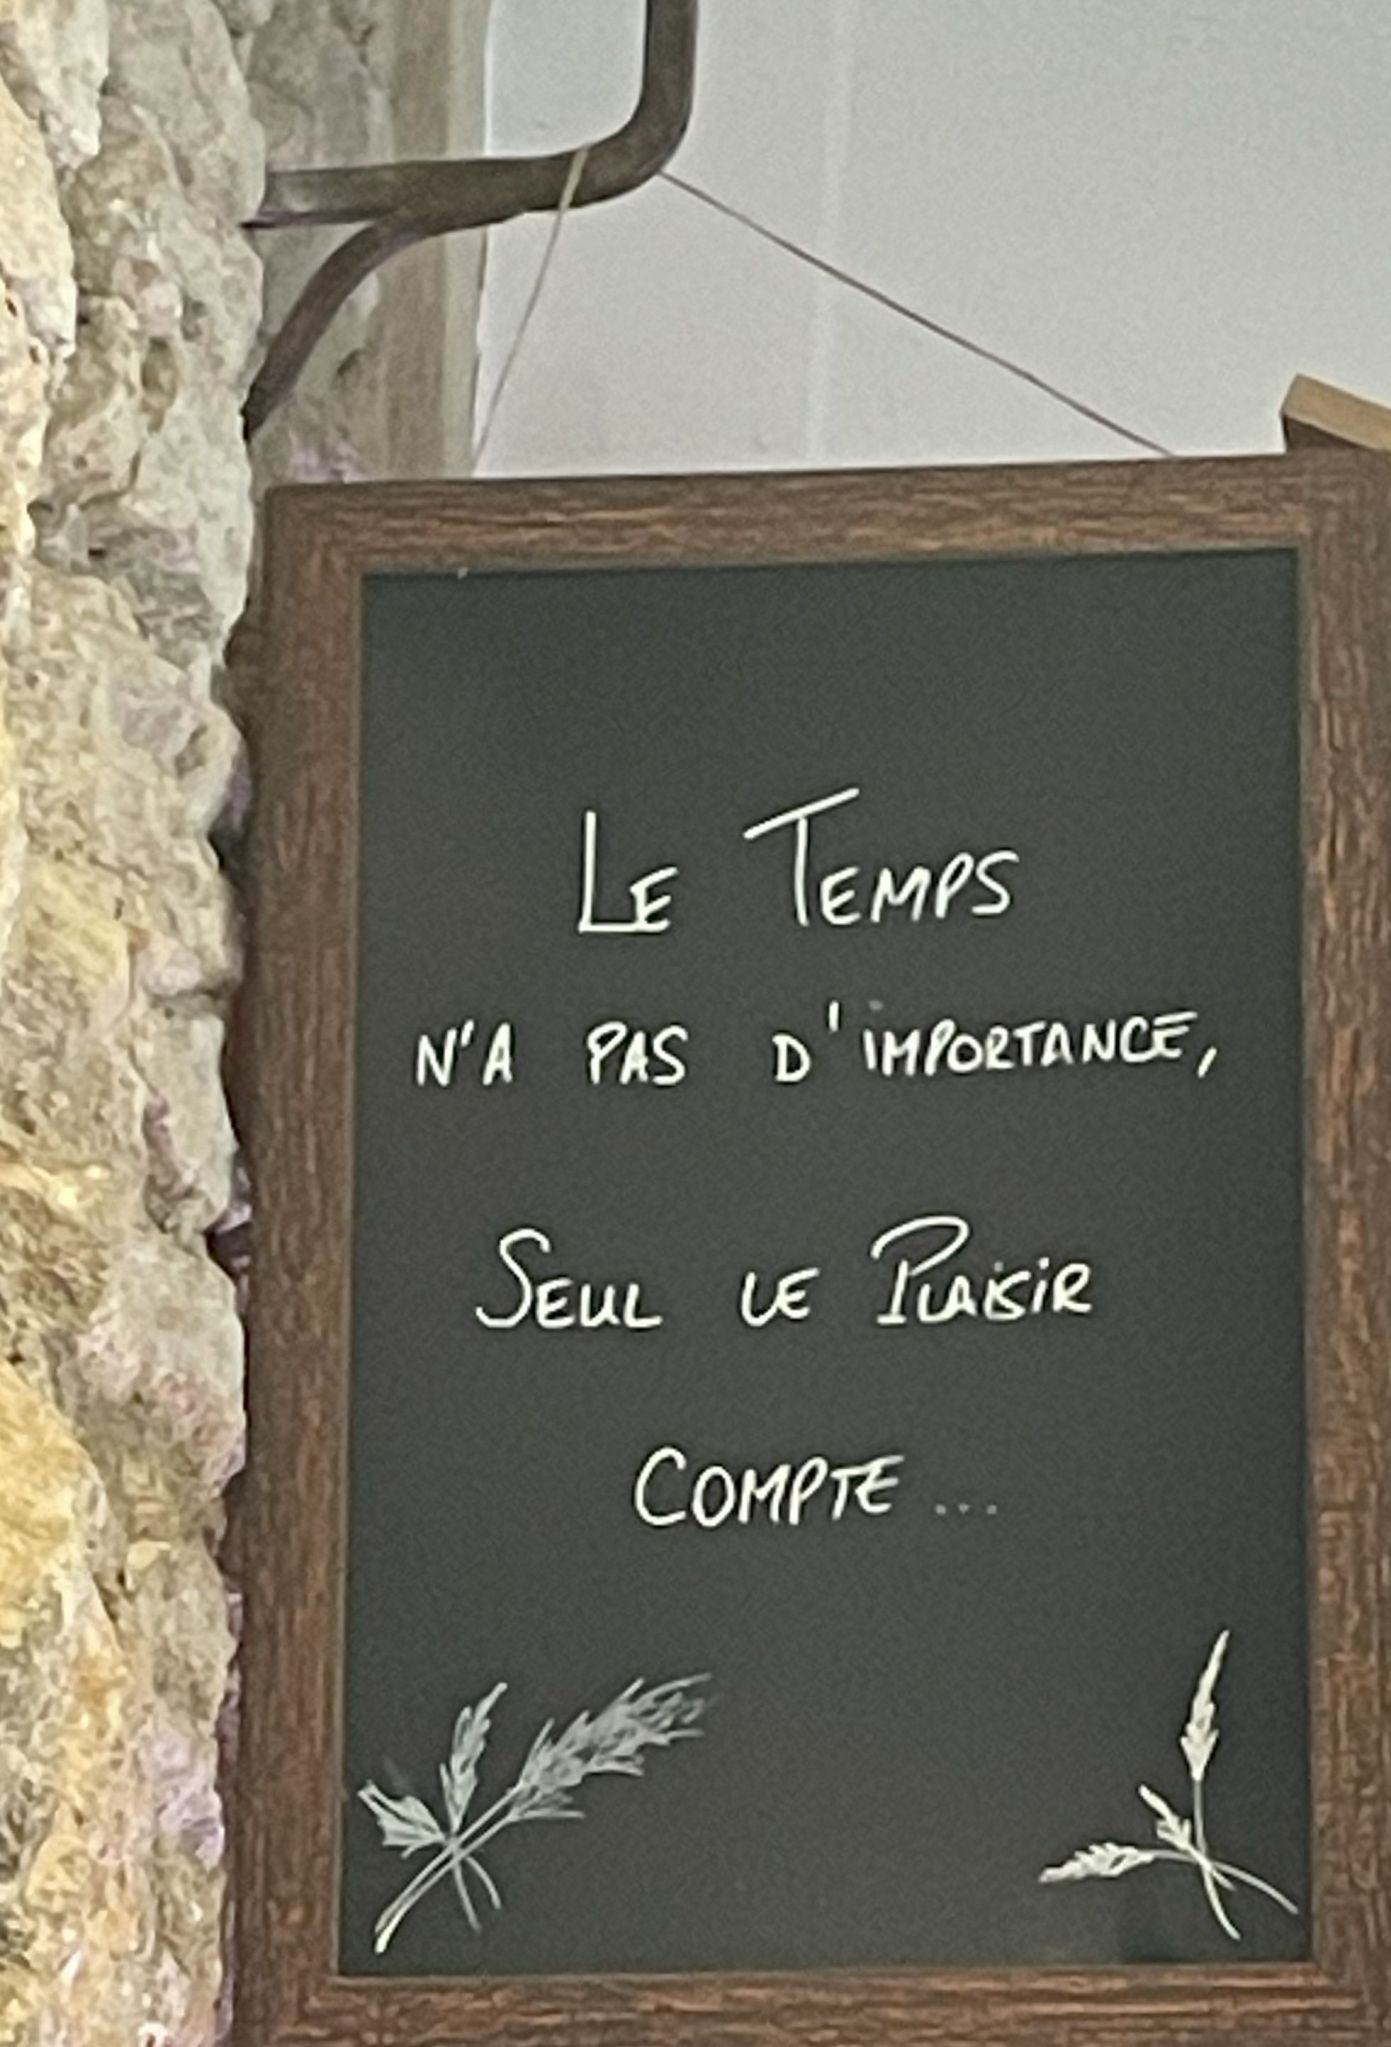 Le Temps
n'a pas d'importance,
Seul le Plaisir
Compte...